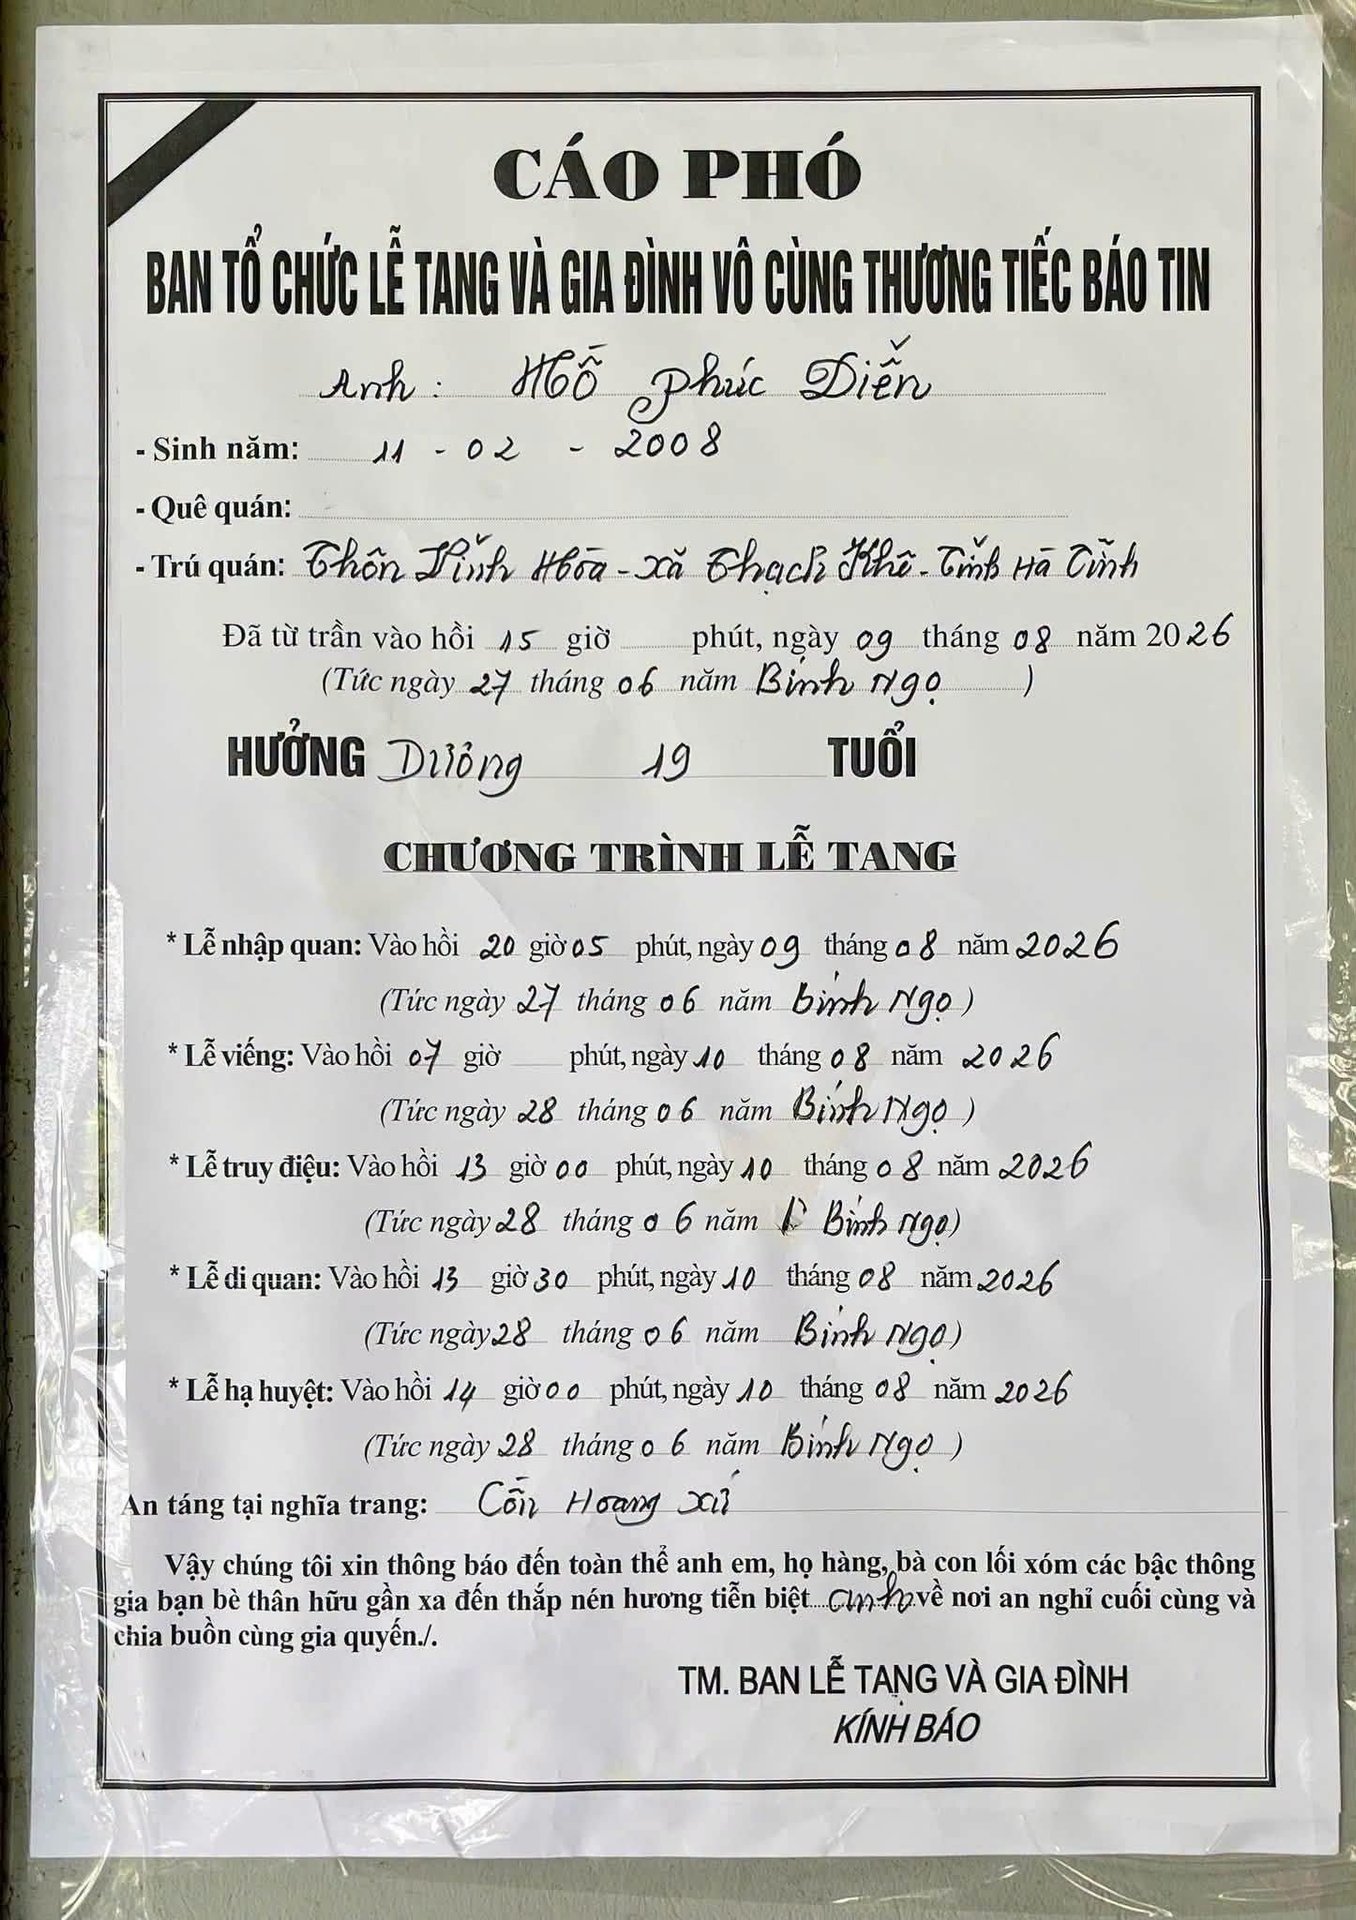 CÁO PHÓ
BAN TỔ CHỨC LỄ TANG VÀ GIA ĐÌNH VÔ CÙNG THƯƠNG TIẾC BÁO TIN
Anh: Hồ Phúc Diễn
- Sinh năm: 11 - 02 - 2008
- Quê quán:
- Trú quán: Thôn Hòa - xã Thạch Khê - Tỉnh Hà Tĩnh
Đã từ trần vào hồi 15 giờ phút, ngày 09 tháng 08 năm 2026
(Tức ngày 27 tháng 06 năm Bính Ngọ )
HƯỞNG Dương 19 TUỔI
CHƯƠNG TRÌNH LỄ TANG
* Lễ nhập quan: Vào hồi 20 giờ 05 phút, ngày 09 tháng 08 năm 2026
(Tức ngày 27 tháng 06 năm Bính Ngọ)
* Lễ viếng: Vào hồi 07 giờ phút, ngày 10 tháng 08 năm 2026
(Tức ngày 28 tháng 06 năm Bính Ngọ)
* Lễ truy điệu: Vào hồi 13 giờ 00 phút, ngày 10 tháng 08 năm 2026
(Tức ngày 28 tháng 06 năm Bính Ngọ)
* Lễ di quan: Vào hồi 13 giờ 30 phút, ngày 10 tháng 08 năm 2026
(Tức ngày 28 tháng 06 năm Bính Ngọ)
* Lễ hạ huyệt: Vào hồi 14 giờ 00 phút, ngày 10 tháng 08 năm 2026
(Tức ngày 28 tháng 06 năm Bính Ngọ)
An táng tại nghĩa trang: Cồn Hoang
Vậy chúng tôi xin thông báo đến toàn thể anh em, họ hàng, bà con lối xóm các bậc thông
gia bạn bè thân hữu gần xa đến thắp nén hương tiễn biệt anh về nơi an nghỉ cuối cùng và
chia buồn cùng gia quyến./.
TM. BAN LỄ TANG VÀ GIA ĐÌNH
KÍNH BÁO